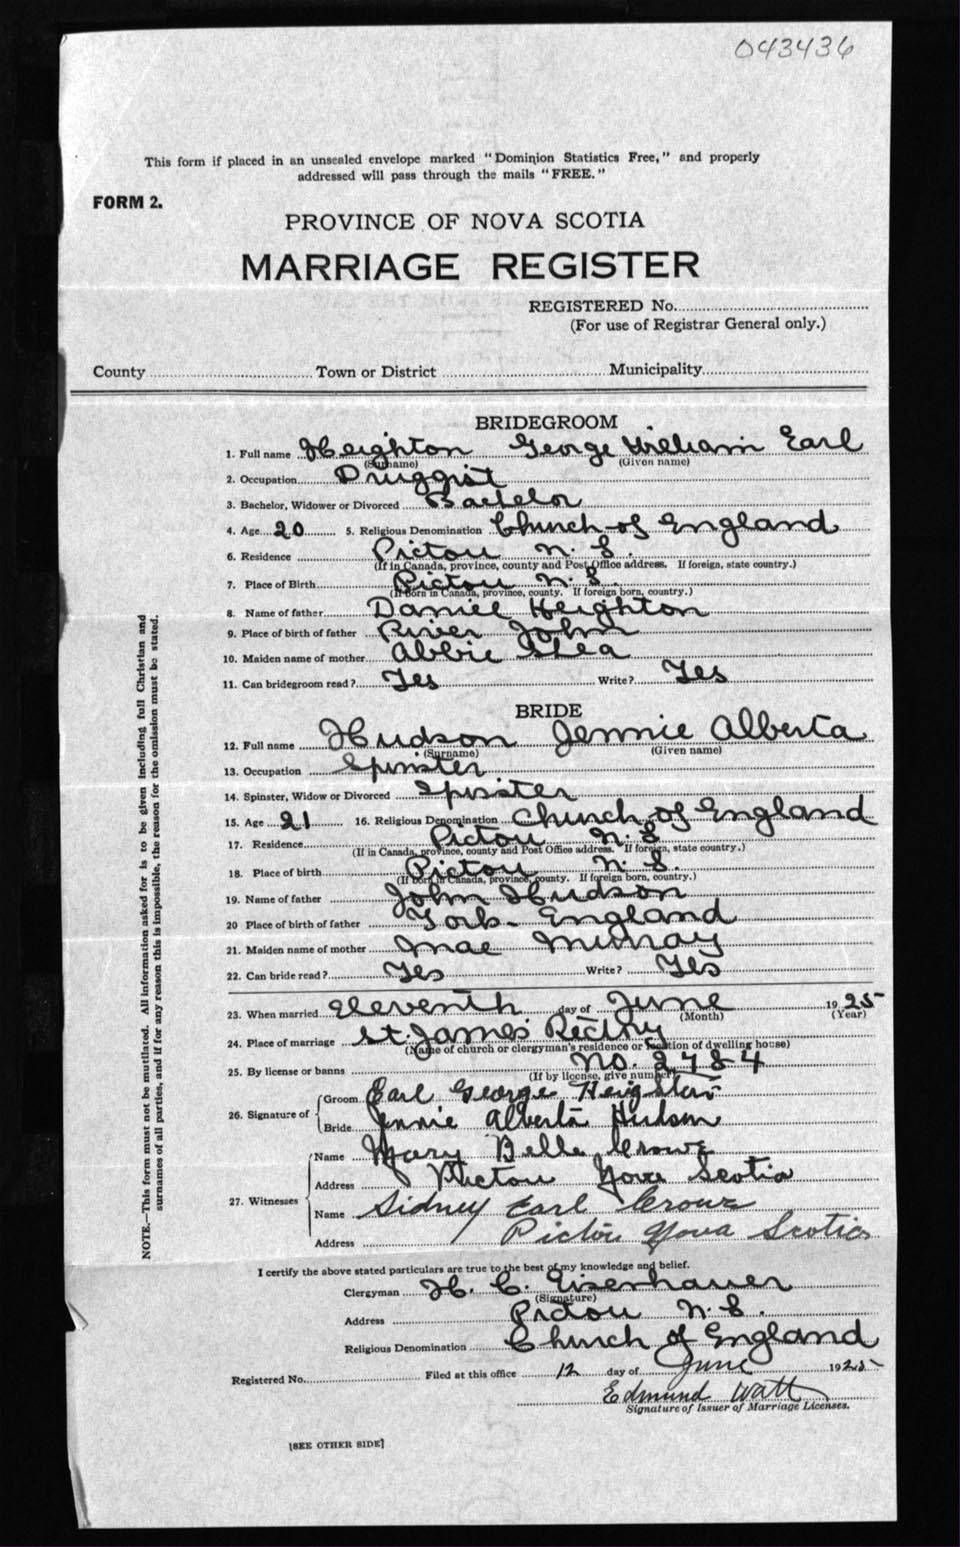 043436
This form if placed in an unsealed envelope marked "Dominion Statistics Free," and properly
addressed will pass through the mails "FREE."
FORM 2.
PROVINCE OF NOVA SCOTIA
MARRIAGE REGISTER
REGISTERED No.
(For use of Registrar General only.)
County Town or District Municipality
BRIDEGROOM
1. Full name Heighton George William Earl
(Surname) (Given name)
2. Occupation Druggist
3. Bachelor, Widower or Divorced Bachelor
4. Age 20 5. Religious Denomination Church of England
6. Residence Pictou N.S.
(If in Canada, province, county and Post Office address. If foreign, state country.)
7. Place of Birth Pictou N.S.
(If born in Canada, province, county. If foreign born, country.)
8. Name of father Daniel Heighton
9. Place of birth of father River John
10. Maiden name of mother Abbie Shea
11. Can bridegroom read? Yes Write? Yes
BRIDE
12. Full name Hudson Jennie Alberta
(Surname) (Given name)
13. Occupation Spinster
14. Spinster, Widow or Divorced Spinster
15. Age 21 16. Religious Denomination Church of England
17. Residence Pictou N.S
(If in Canada, province, county and Post Office address. If foreign, state country.)
18. Place of birth Pictou N.S.
(If born in Canada, province, county. If foreign born, country.)
19. Name of father John Hudson
20 Place of birth of father York England
21. Maiden name of mother Mae Murray
22. Can bride read? Yes Write? Yes
23. When married Eleventh day of June 1925
(Month) (Year)
24. Place of marriage St. James Rectory
(Name of church or clergyman's residence or location of dwelling house)
25. By license or banns No. 2484
(If by license, give number)
26. Signature of Groom Earl George Heighton
Bride Jennie Alberta Hudson
27. Witnesses Name Mary Belle Crowe
Address Pictou Nova Scotia
Name Sidney Earl Crowe
Address Pictou Nova Scotia
I certify the above stated particulars are true to the best of my knowledge and belief.
Clergyman H. C. Eisenhauer
(Signature)
Address Pictou N.S.
Religious Denomination Church of England
Registered No. Filed at this office 12 day of June 1925
Edmund Watt
Signature of Issuer of Marriage Licenses.
[SEE OTHER SIDE]
NOTE.—This form must not be mutilated. All information asked for is to be given including full Christian and
surnames of all parties, and if for any reason this is impossible, the reason for the omission must be stated.